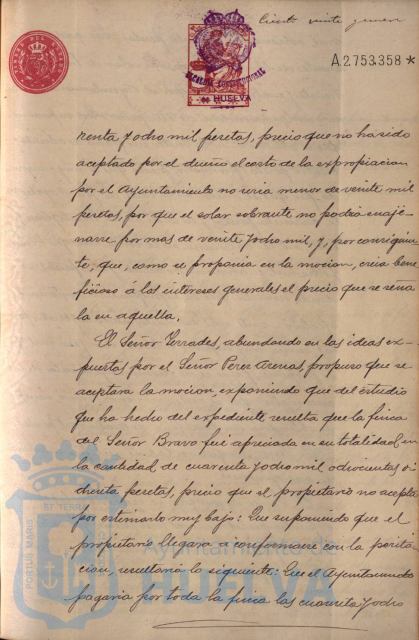 Ciento veinte
A2753358*
ALCALDIA CONSTITUCIONAL
HUELVA
renta y ocho mil pesetas, precio que no ha sido
aceptado por el dueño el costo de la expropiacion
por el Ayuntamiento no seria menor de veinte mil
pesetas, por que el solar sobrante no podria enaje-
narse por mas de veinte y ocho mil, y, por consiguien-
te, que, como se proponia en la mocion, creia bene-
ficioso á los intereses generales el precio que se seña-
la en aquella.
El Señor Terrades, abundando en las ideas ex-
puestas por el Señor Perez Arenas, propuso que se
aceptara la mocion, exponiendo que del estudio
que ha hecho del expediente resulta que la finca
del Señor Bravo fué apreciada en su totalidad en
la cantidad de cuarenta y ocho mil ochocientas o-
chenta pesetas, precio que el propietario no acepta
por estimarlo muy bajo: Que suponiendo que el
propietario llegara a conformarse con la peritá-
cion, resultaria lo siguiente: Que el Ayuntamiento
pagaria por toda la finca las cuarenta y ocho
PORTUS MARIS ET TERRAE
Ayuntamiento de
HUELVA